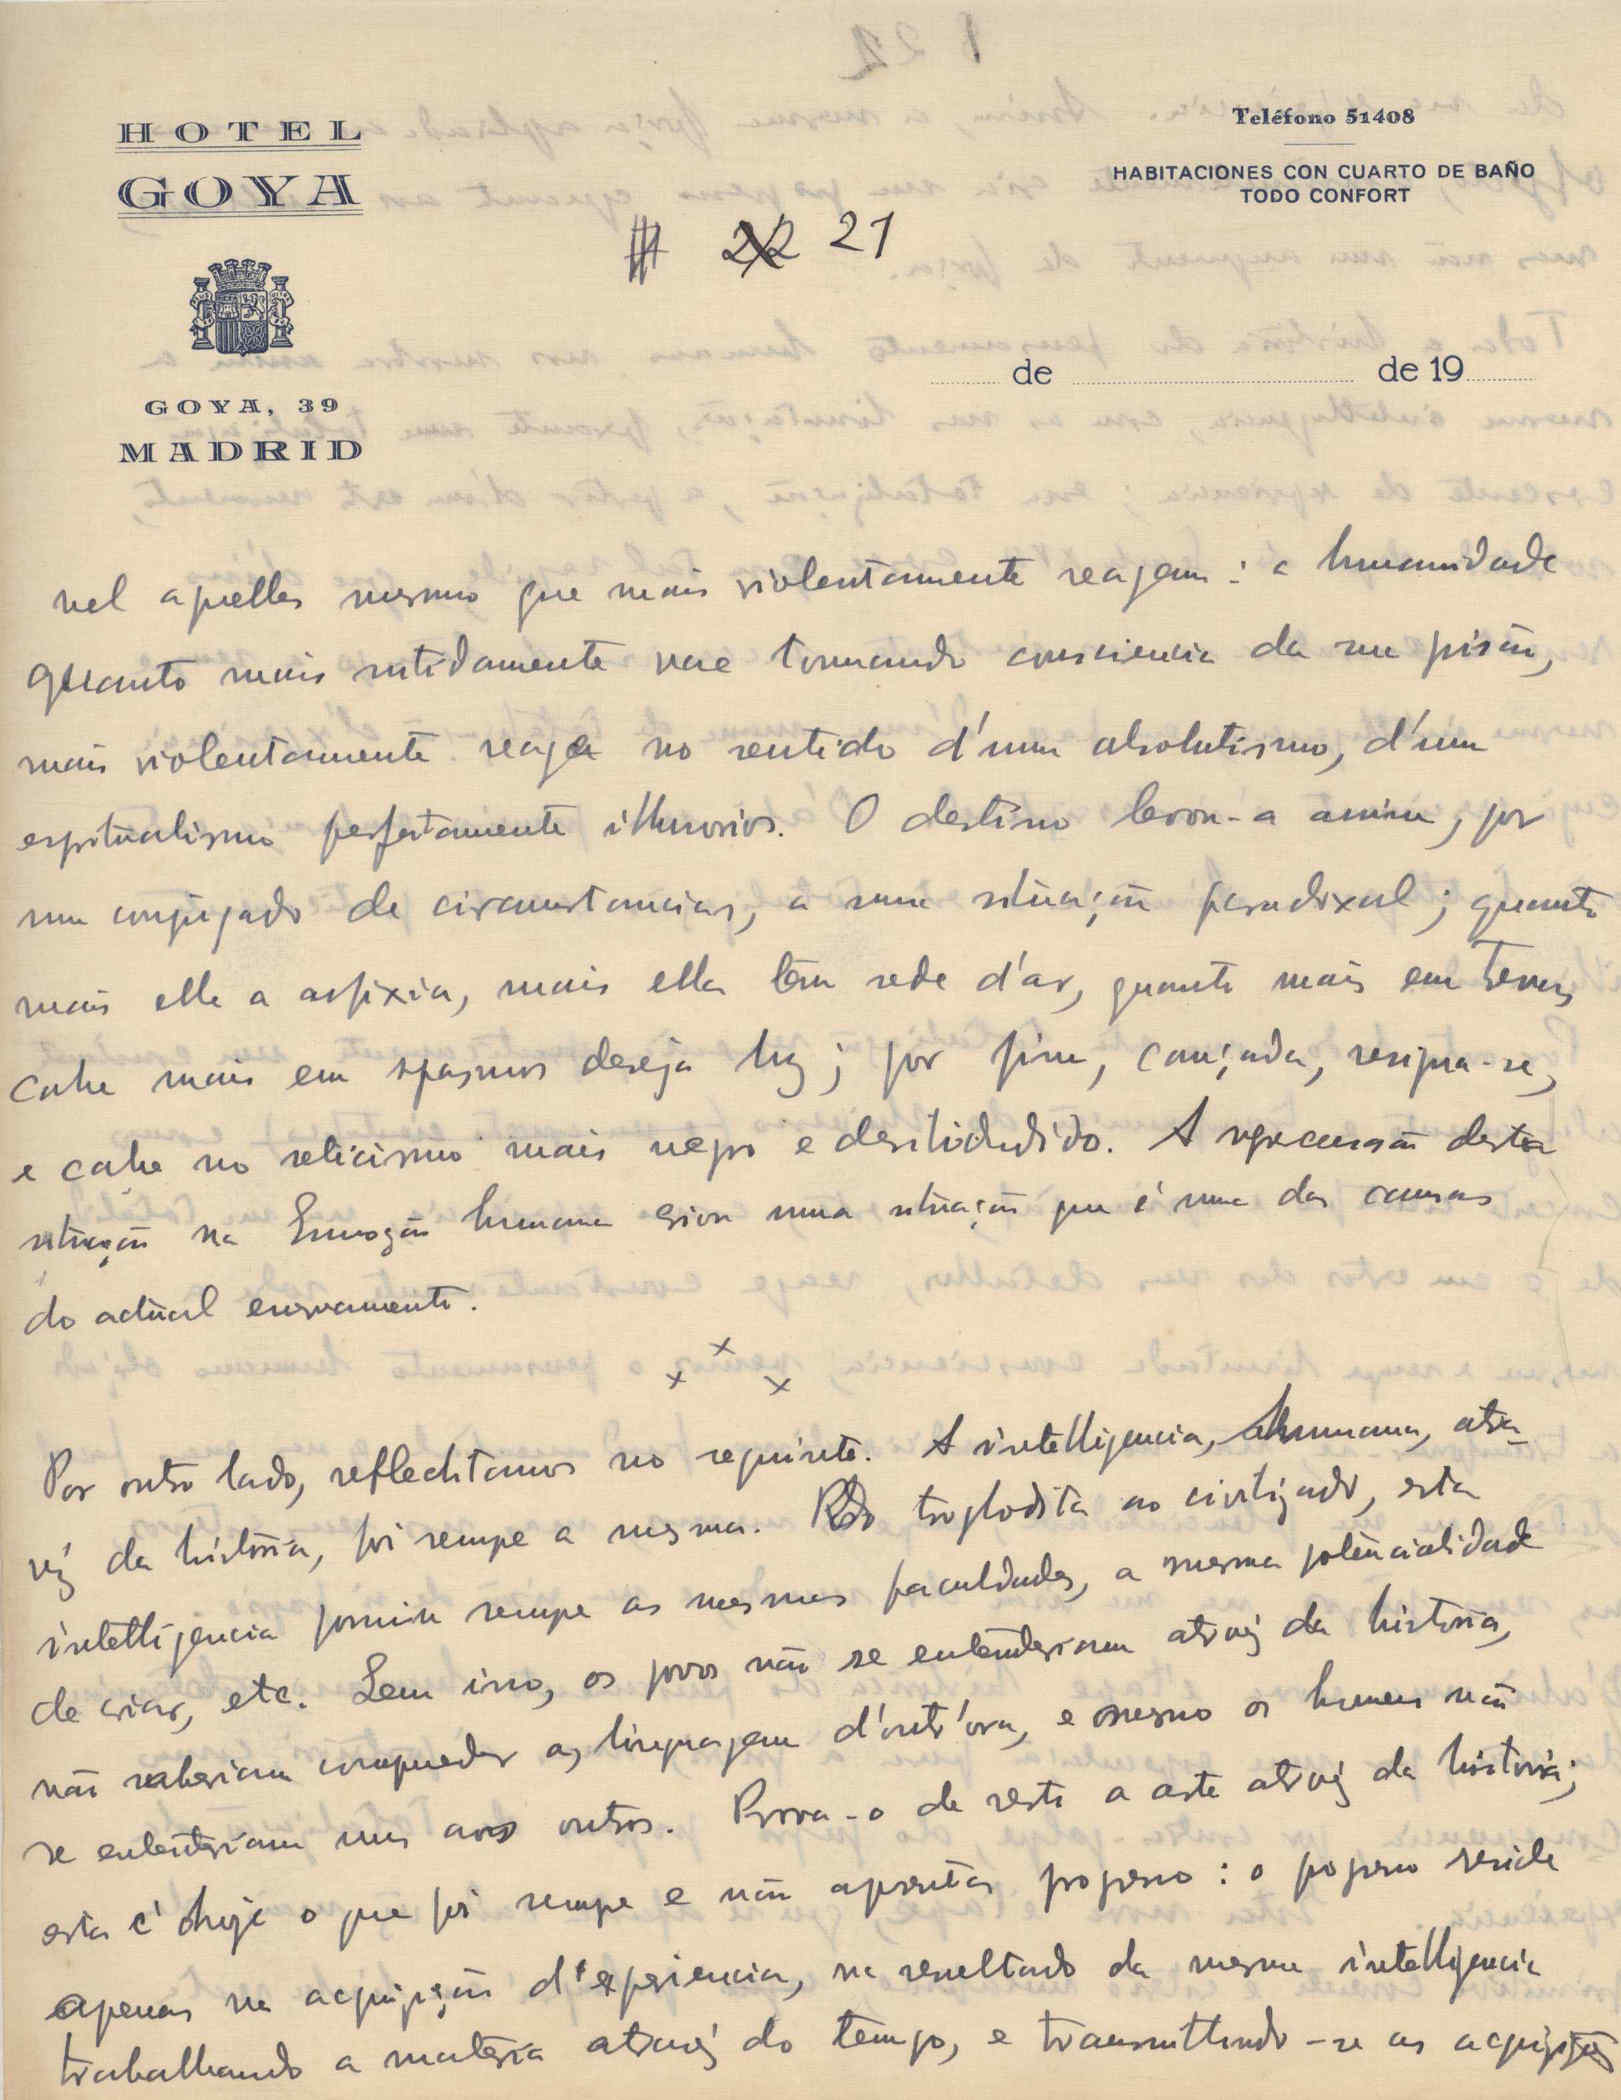 HOTEL
GOYA
GOYA, 39
MADRID
Teléfono 51408
HABITACIONES CON CUARTO DE BAÑO
TODO CONFORT
22 21
de de 19
vel aquelles mesmo que mais violentamente reagem: a humanidade
quanto mais nitidamente vae tomando consciencia da sua prisão,
mais violentamente reage no sentido d'um absolutismo, d'um
espritualismo perfeitamente illusorios. O destino levou-a assim, por
um conjugado de circumstancias, a uma situação paradoxal; quanto
mais elle a asfixia, mais ella têm sede d'ar, quanto mais em trevas
cahe mais em spasmos deseja luz; por fim, cançada, resigna-se,
e cahe no scticismo mais negro e desiludido. A repercussão desta
situação na Emoção humana criou uma situação que é uma das causas
do actual enervamento.
x x x
Por outro lado, reflectitamos no seguinte. A intelligencia, humana, atra-
véz da história, foi sempre a mesma. Do troglodita ao civilizado, esta
intelligencia possuiu sempre as mesmas faculdades, a mesma potencialidade
de criar, etc. Sem isso, os povos não se entenderiam atravéz da história,
não saberiam comprender as linguagem d'outr'ora, e mesmo os homens não
se entenderiam uns aos outros. Prova-o de resto a arte atravéz da história;
esta é hoje o que foi sempre e não apresenta progresso: o progresso reside
apenas na acquisição d'experiencia, no resultado da mesma intelligencia
trabalhando a materia atravéz do tempo, e transmittindo-se as acquisições